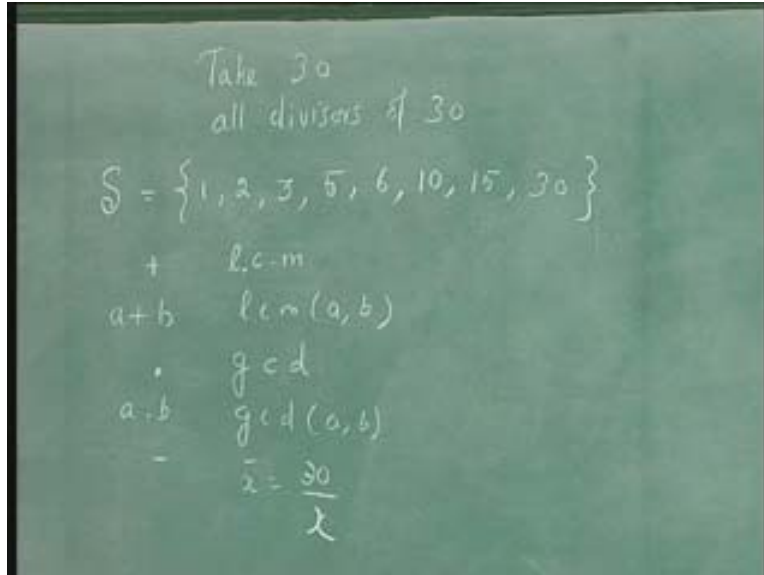 Take 30
all divisors of 30
S = {1, 2, 3, 5, 6, 10, 15, 30}
+ l.c.m
a+b lcm(a,b)
. gcd
a.b gcd(a,b)
-
x̄ = 30/x